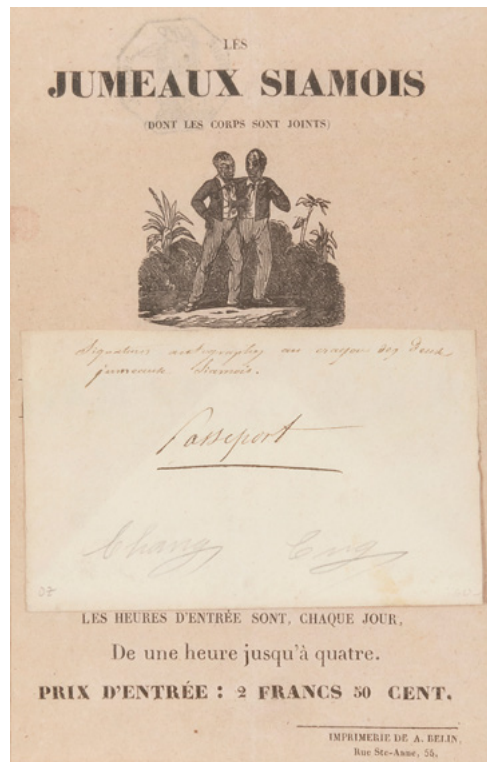 LES
JUMEAUX SIAMOIS
(DONT LES CORPS SONT JOINTS)
Signatures autographes au crayon des Deux
jumeaux Siamois.
Passeport
Chang Eng
LES HEURES D'ENTRÉE SONT, CHAQUE JOUR,
De une heure jusqu'à quatre.
PRIX D'ENTRÉE : 2 FRANCS 50 CENT.
IMPRIMERIE DE A. BELIN,
Rue Ste-Anne, 55.